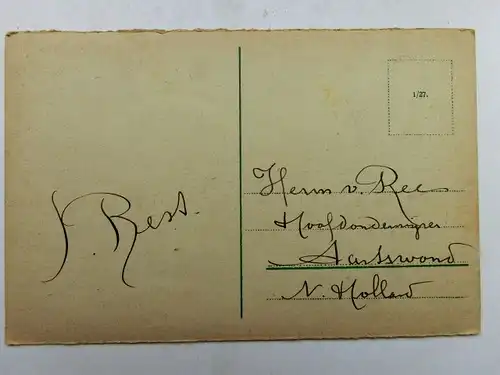 F. Best.
1/27.
Herrn v. Ree
Hoofdonderwijzer
Aartswoud
N. Holland